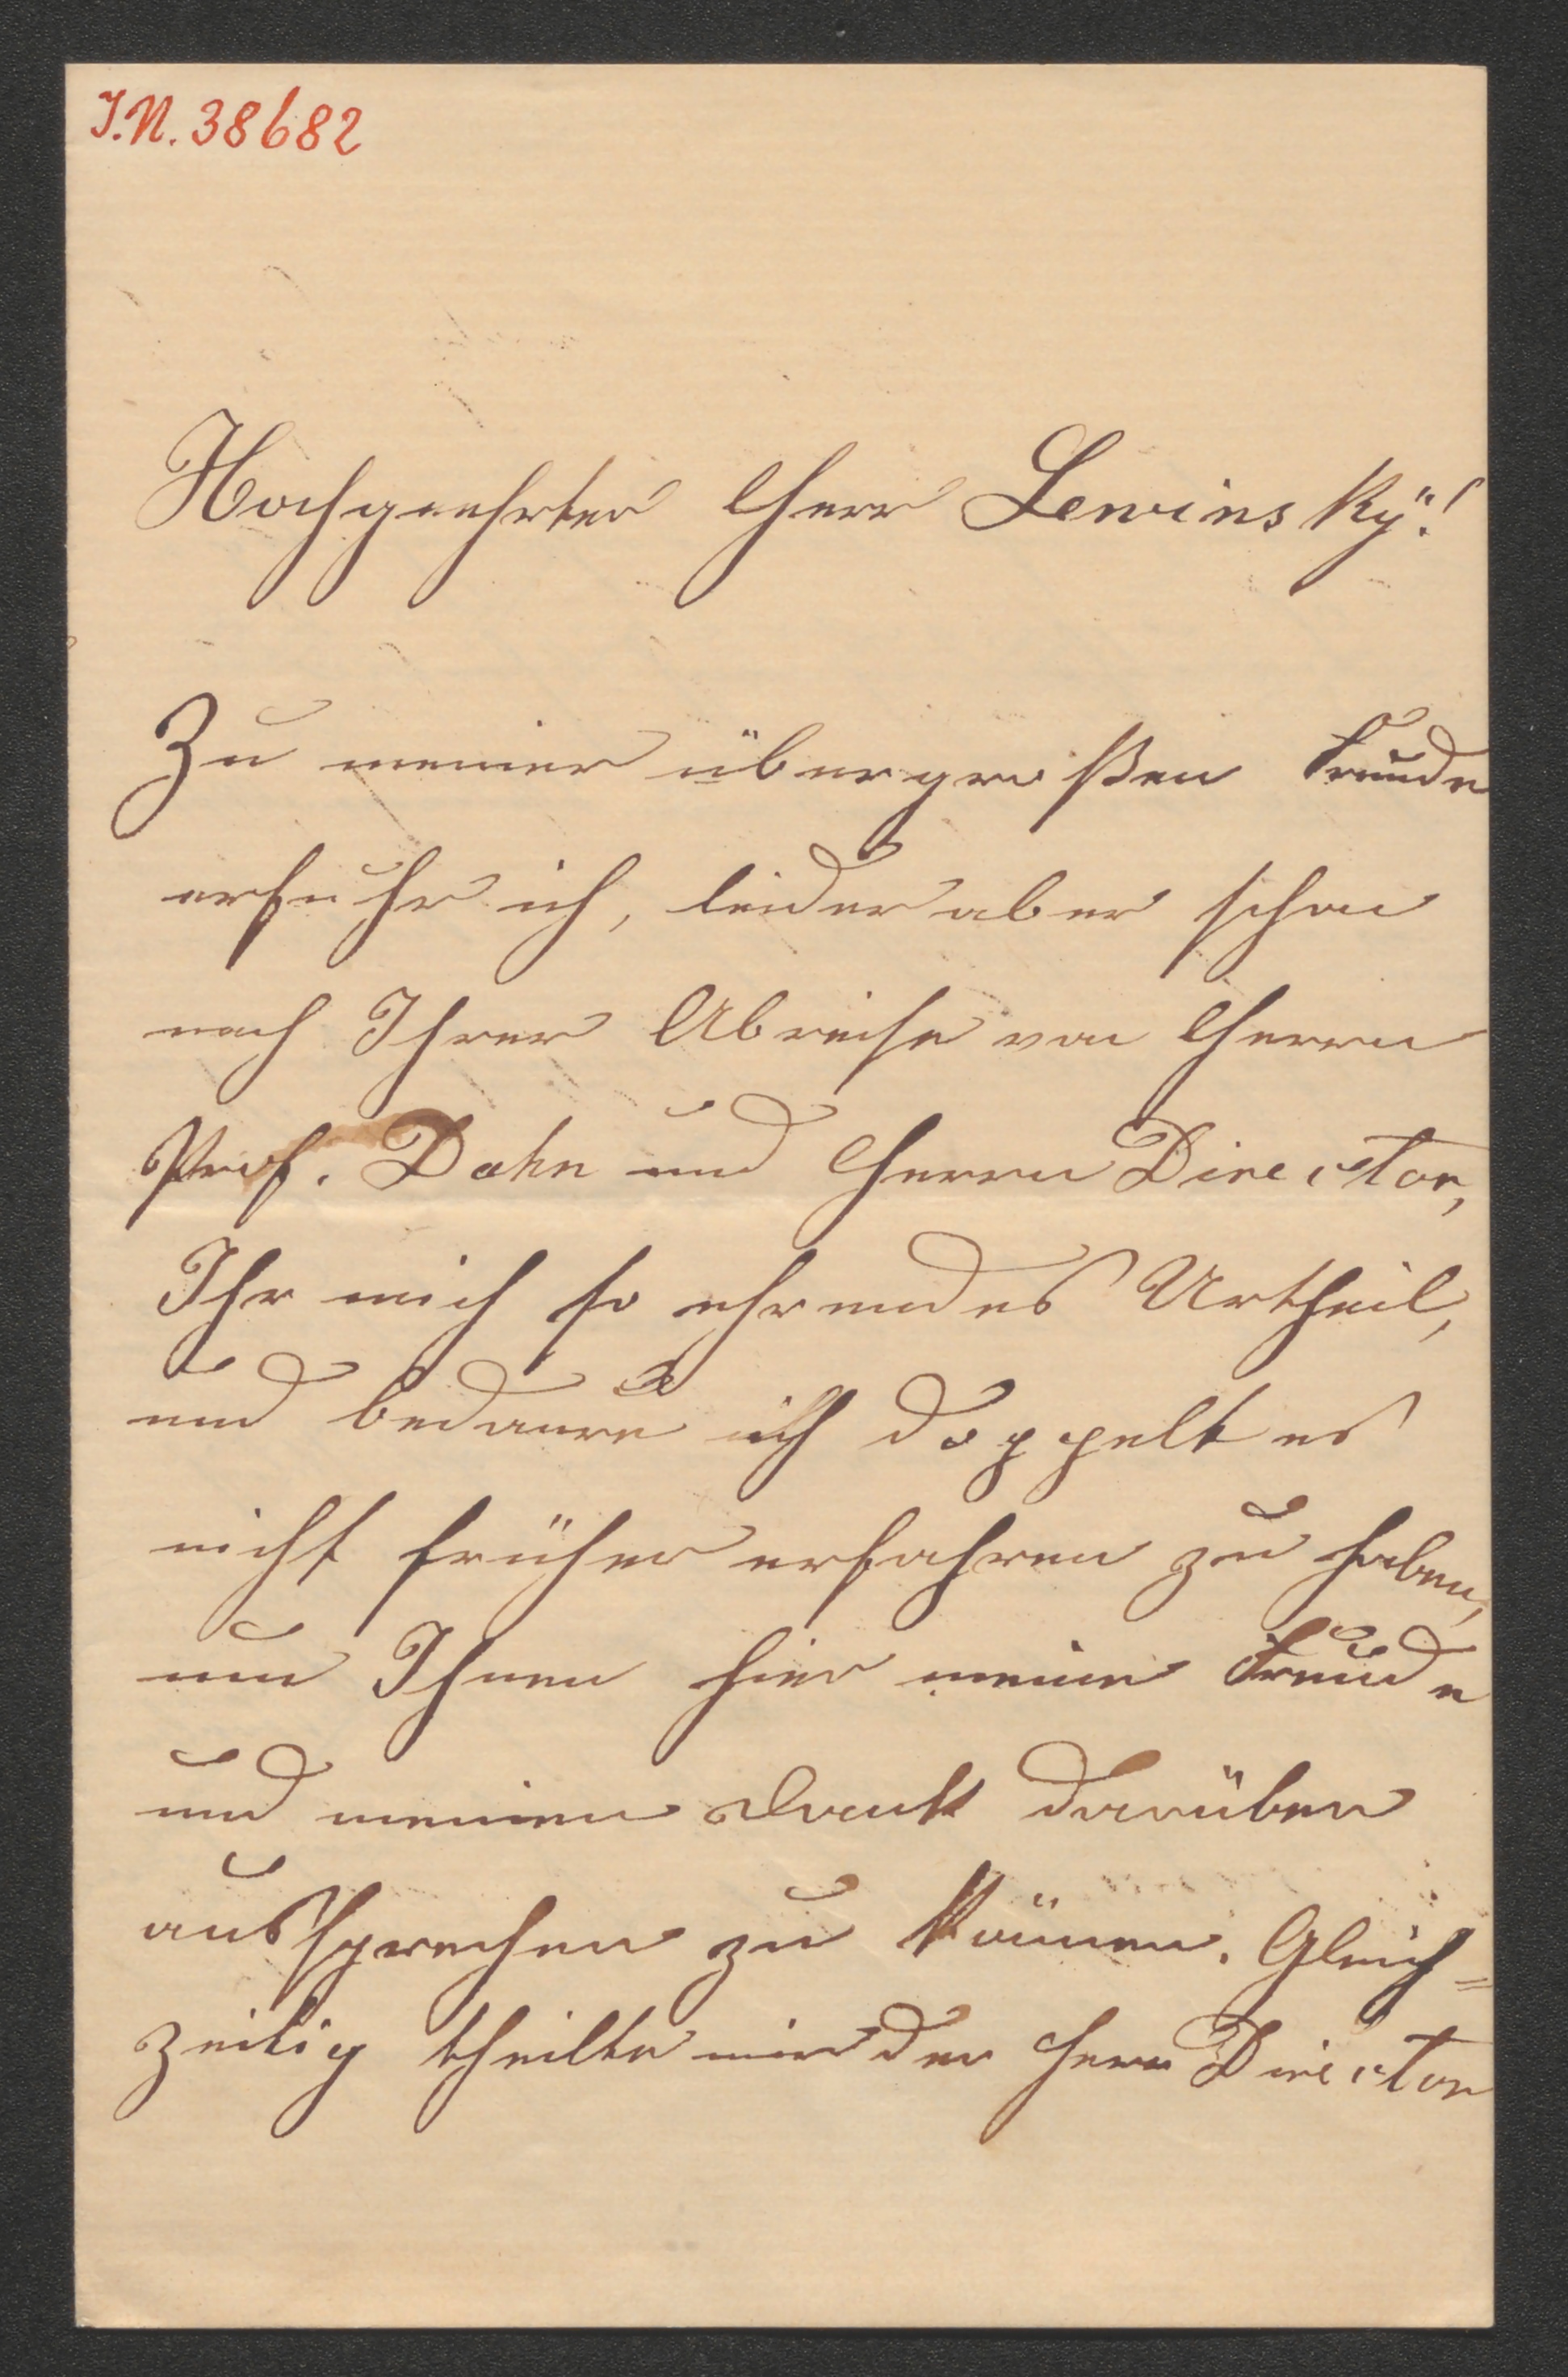 I.N. 38682
Hochgeehrter Herr Lewinsky!
Zu meiner übergroßen Freude
erfuhr ich, leider aber schon
nach Ihrer Abreise von Herrn
Prof. Dahn und Herrn Director,
Ihr mich so ehrendes Urtheil,
und bedaure ich doppelt es
nicht früher erfahren zu haben,
um Ihnen hier meine Freude
und meinen Dank darüber
aussprechen zu können. Gleich=
zeitig theilte mir der Herr Director